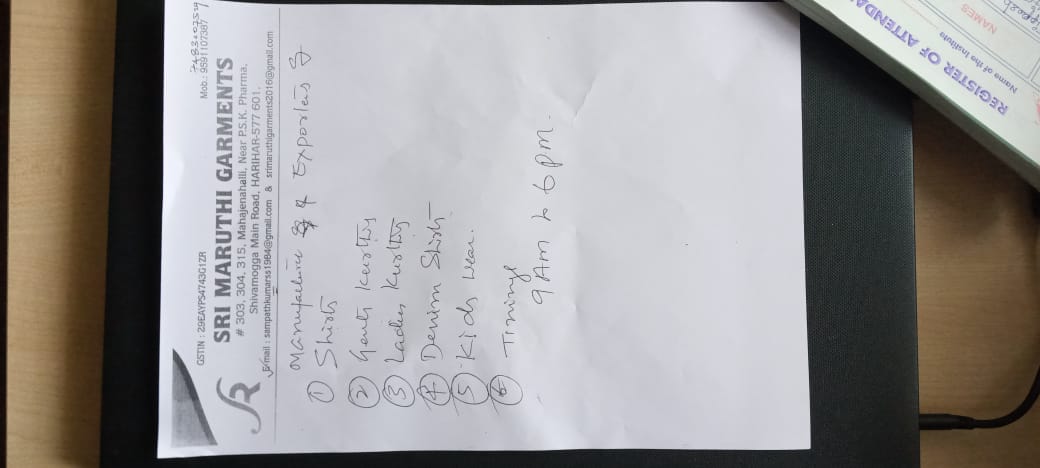 GSTIN : 29EAYPS4743G1ZR
7483407547
Mob.: 9591107387
SRI MARUTHI GARMENTS
# 303, 304, 315, Mahajenahalli, Near P.S.K. Pharma,
Shivamogga Main Road, HARIHAR-577 601.
E-mail : sampathkumarss1984@gmail.com & srimaruthigarments2016@gmail.com
Manufacture & Exporters of
① Shirts
② Gents Kurthis
③ Ladies Kurthis
④ Denim Shirt
⑤ Kids Wear.
⑥ Timings
9 Am to 6 pm.
REGISTER OF ATTENDA
Name of the Institute
NAMES